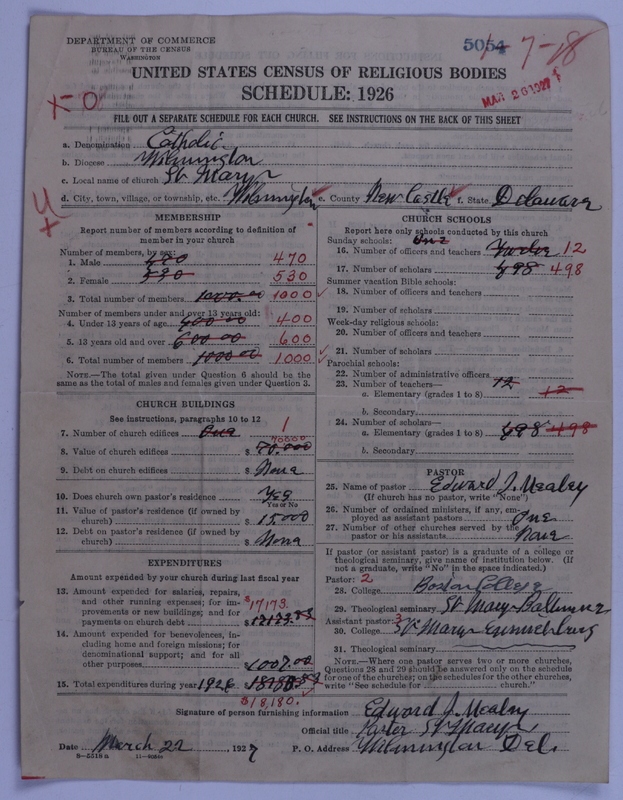 DEPARTMENT OF COMMERCE
BUREAU OF THE CENSUS
WASHINGTON
5054 7-18
MAR 26 1927
UNITED STATES CENSUS OF RELIGIOUS BODIES
SCHEDULE: 1926
X-O
FILL OUT A SEPARATE SCHEDULE FOR EACH CHURCH. SEE INSTRUCTIONS ON THE BACK OF THIS SHEET
a. Denomination Catholic
b. Diocese Wilmington
c. Local name of church St Mary's
d. City, town, village, or township, etc. Wilmington e. County New Castle f. State Delaware
MEMBERSHIP
Report number of members according to definition of
member in your church
Number of members, by sex:
1. Male 470
2. Female 530 530
3. Total number of members 1000 00 1000
Number of members under and over 13 years old:
4. Under 13 years of age 400 00 400
5. 13 years old and over 600 00 600
6. Total number of members 1000 00 1000
NOTE.—The total given under Question 6 should be the
same as the total of males and females given under Question 3.
CHURCH BUILDINGS
See instructions, paragraphs 10 to 12
7. Number of church edifices One 1
70000
8. Value of church edifices $ 70.000
9. Debt on church edifices $ None
10. Does church own pastor's residence Yes
Yes or No
11. Value of pastor's residence (if owned by
church) $ 15.000
12. Debt on pastor's residence (if owned by
church) $ None
EXPENDITURES
Amount expended by your church during last fiscal year
13. Amount expended for salaries, repairs,
and other running expenses; for im-
provements or new buildings; and for
payments on church debt $17173. $ 17173.83
14. Amount expended for benevolences, in-
cluding home and foreign missions; for
denominational support; and for all
other purposes $ 1007.00
15. Total expenditures during year 1926
$18,180.
CHURCH SCHOOLS
Report here only schools conducted by this church
Sunday schools: One
16. Number of officers and teachers Twelve 12
17. Number of scholars 498 498
Summer vacation Bible schools:
18. Number of officers and teachers
19. Number of scholars
Week-day religious schools:
20. Number of officers and teachers
21. Number of scholars
Parochial schools:
22. Number of administrative officers
23. Number of teachers— 12
a. Elementary (grades 1 to 8) 12
b. Secondary
24. Number of scholars—
a. Elementary (grades 1 to 8) 498 498
b. Secondary
PASTOR
25. Name of pastor Edward J. Mealey
(If church has no pastor, write "None")
26. Number of ordained ministers, if any, em-
ployed as assistant pastors One
27. Number of other churches served by the
pastor or his assistants None
If pastor (or assistant pastor) is a graduate of a college or
theological seminary, give name of institution below. (If
not a graduate, write "No" in the space indicated.)
Pastor: 2
28. College Boston College
29. Theological seminary St Mary Baltimore
Assistant pastor: 3
30. College St Marys Emmitsburg
31. Theological seminary
NOTE.—Where one pastor serves two or more churches,
Questions 28 and 29 should be answered only on the schedule
for one of the churches; on the schedules for the other churches,
write "See schedule for church."
Signature of person furnishing information Edward J. Mealey
Official title Pastor St Marys
Date March 22, 1927 P. O. Address Wilmington Del.
8-5518a